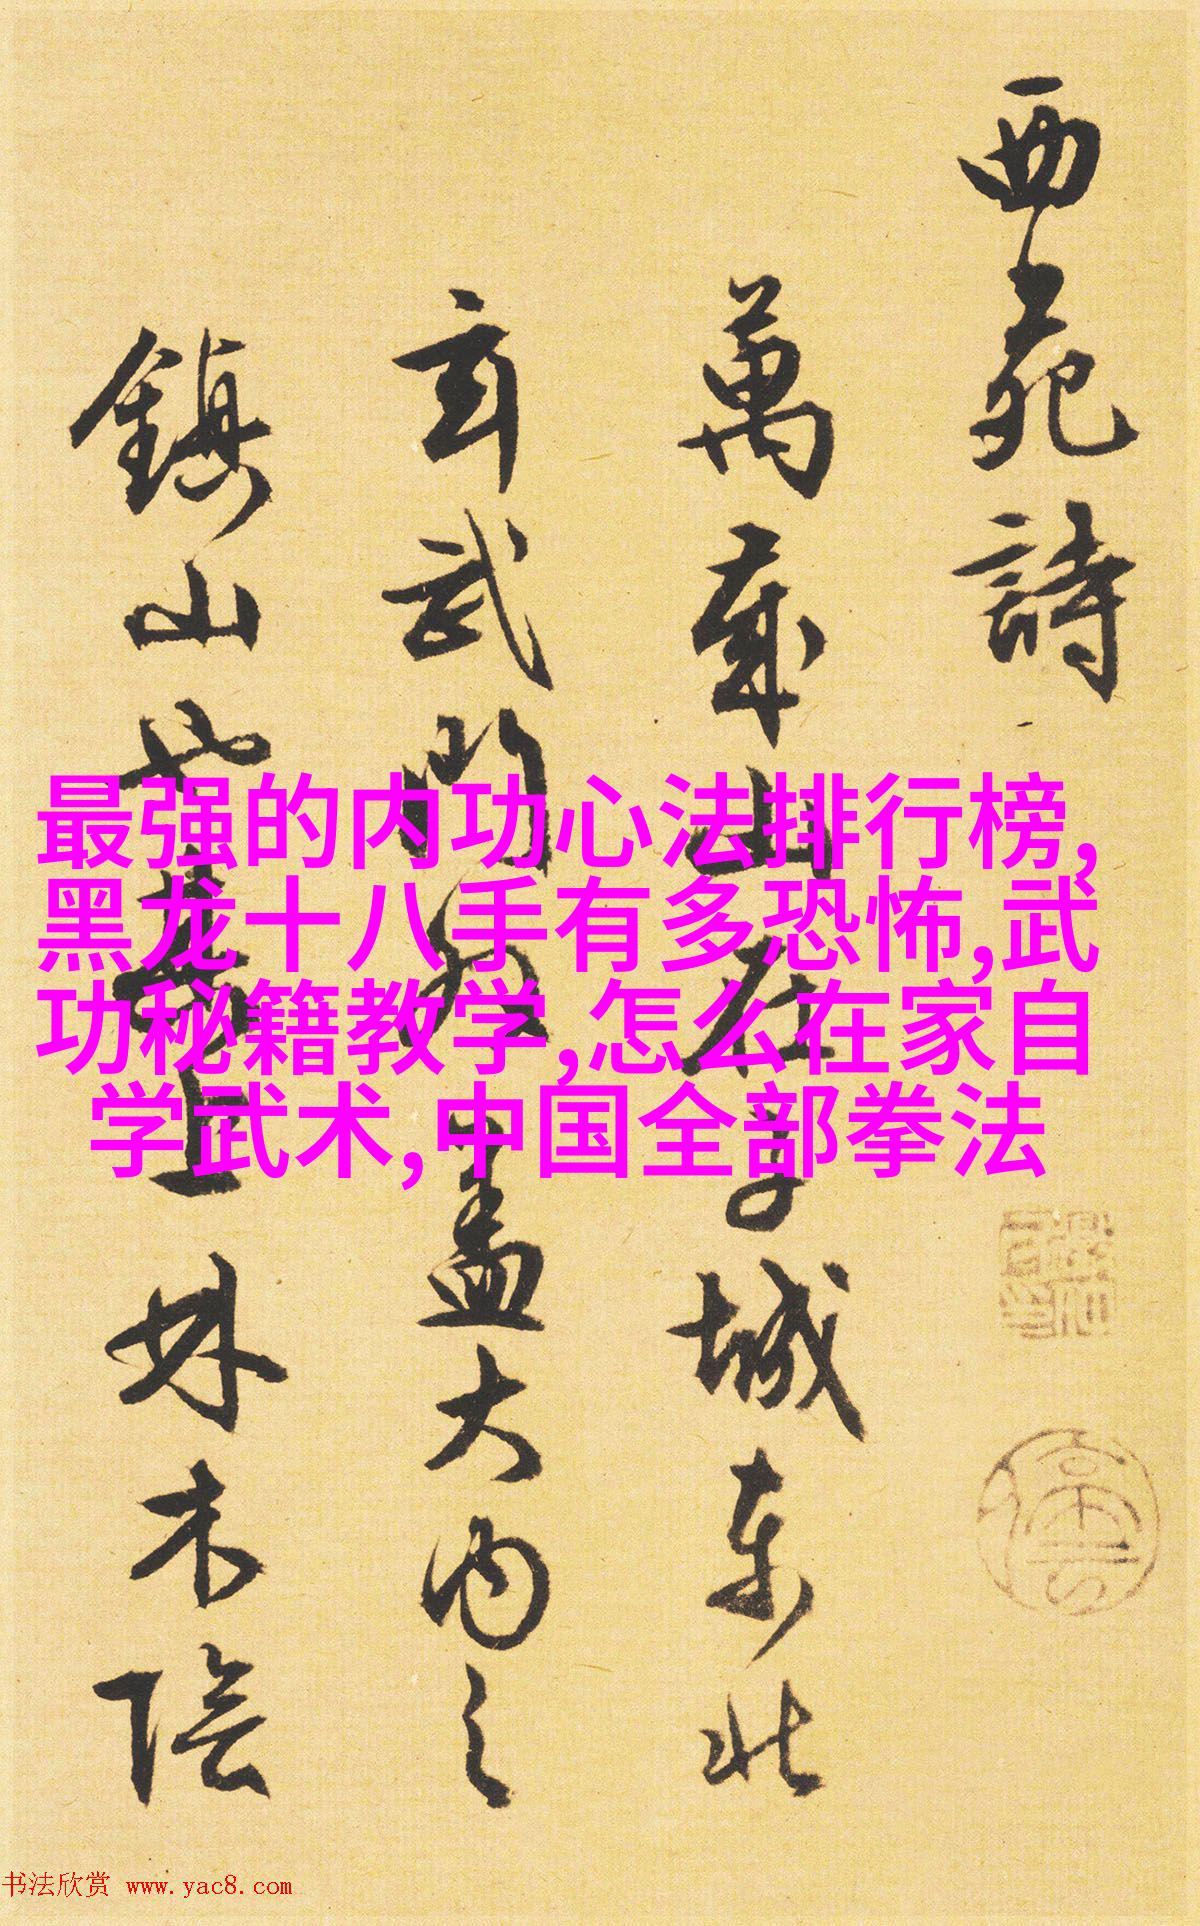 西苑詩
萬歲山在子城東北
玄武門外盖大内之
鎮山也其上林木陰
最强的内功心法排行榜,
黑龙十八手有多恐怖,武
功秘籍教学,怎么在家自
学武术,中国全部拳法
书法欣赏 www.yac8.com